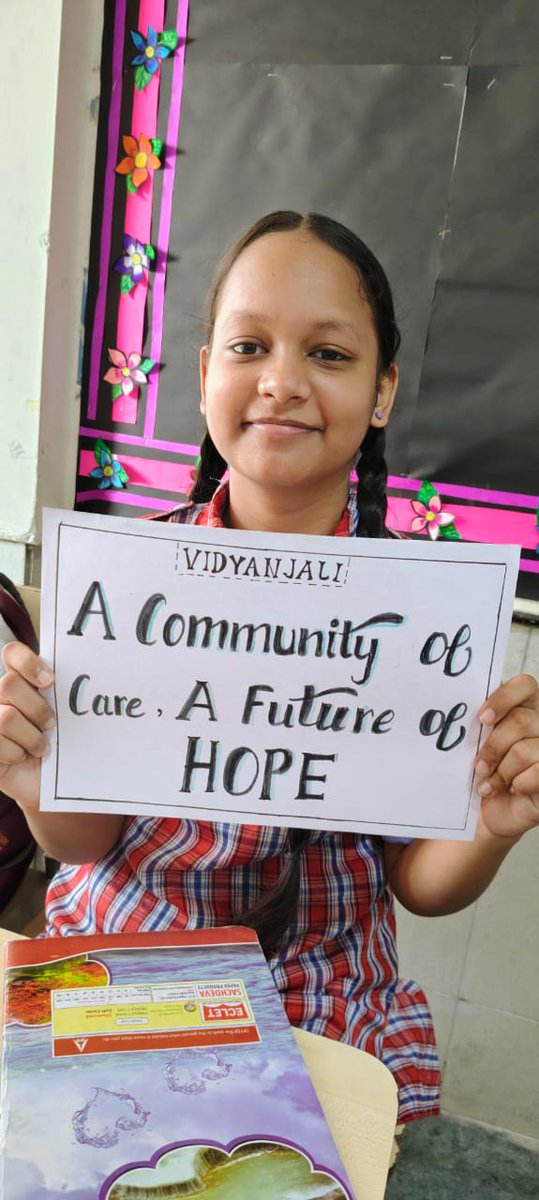 VIDYANJALI
A Community of
Care, A Future of
HOPE
SACHDEVA
PAPER PRODUCTS
ECLET